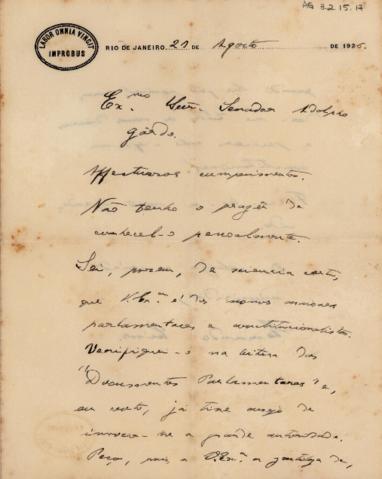 AG 32.15.17
LABOR OMNIA VINCIT
IMPROBUS
RIO DE JANEIRO, 21 DE Agosto DE 1926.
Exmo Snr. Senador Adolpho
Gordo.
Affectuosos cumprimentos.
Não tenho o prazer de
conhecel-o pessoalmente.
Sei, porem, de sciencia certa,
que V. Exa. é dos nossos maiores
parlamentares e constitucionalistas.
Verifiquei-o na leitura dos
"Documentos Parlamentares" e,
por certo, já tive de
a grande autoridade.
Peço, pois a V. Exa. a de,